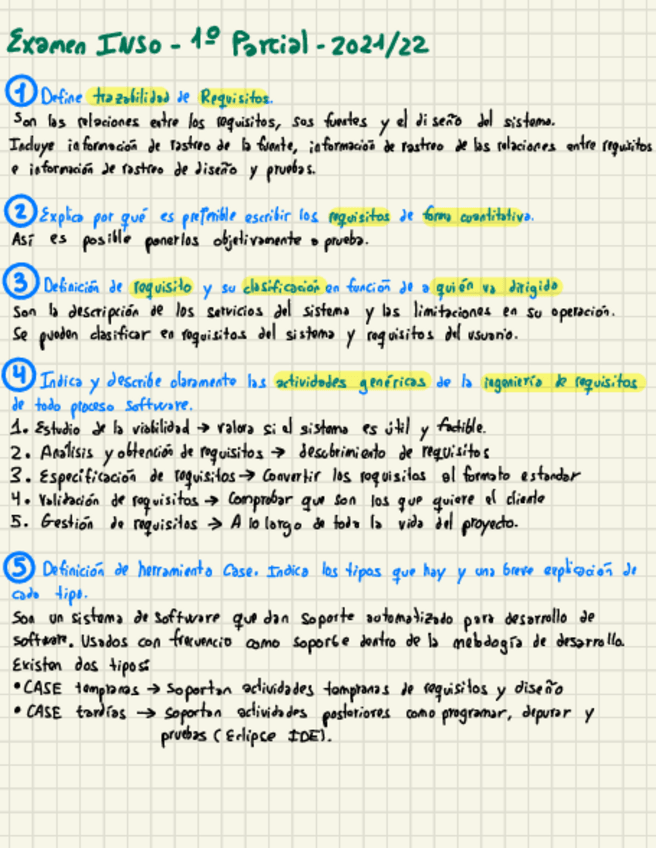 Examen INSO - 1º Parcial - 2021/22
1 Define trazabilidad de Requisitos.
Son las relaciones entre los requisitos, sus fuentes y el diseño del sistema.
Incluye información de rastreo de la fuente, información de rastreo de las relaciones entre requisitos
e información de rastreo de diseño y pruebas.
2 Explica por qué es preferible escribir los requisitos de forma cuantitativa.
Así es posible ponerlos objetivamente a prueba.
3 Definición de requisito y su clasificación en función de a quién va dirigido
Son la descripción de los servicios del sistema y las limitaciones en su operación.
Se pueden clasificar en requisitos del sistema y requisitos del usuario.
4 Indica y describe claramente las actividades genéricas de la ingeniería de requisitos
de todo proceso software.
1. Estudio de la viabilidad → valora si el sistema es útil y factible.
2. Análisis y obtención de requisitos → descubrimiento de requisitos
3. Especificación de requisitos → Convertir los requisitos al formato estandar
4. Validación de requisitos → Comprobar que son los que quiere el cliente
5. Gestión de requisitos → A lo largo de toda la vida del proyecto.
5 Definición de herramienta Case. Indica los tipos que hay y una breve explicación de
cada tipo.
Son un sistema de software que dan soporte automatizado para desarrollo de
software. Usados con frecuencia como soporte dentro de la metodogía de desarrollo.
Existen dos tipos:
• CASE tempranas → Soportan actividades tempranas de requisitos y diseño
• CASE tardías → soportan actividades posteriores como programar, depurar y
pruebas (Eclipse IDE).